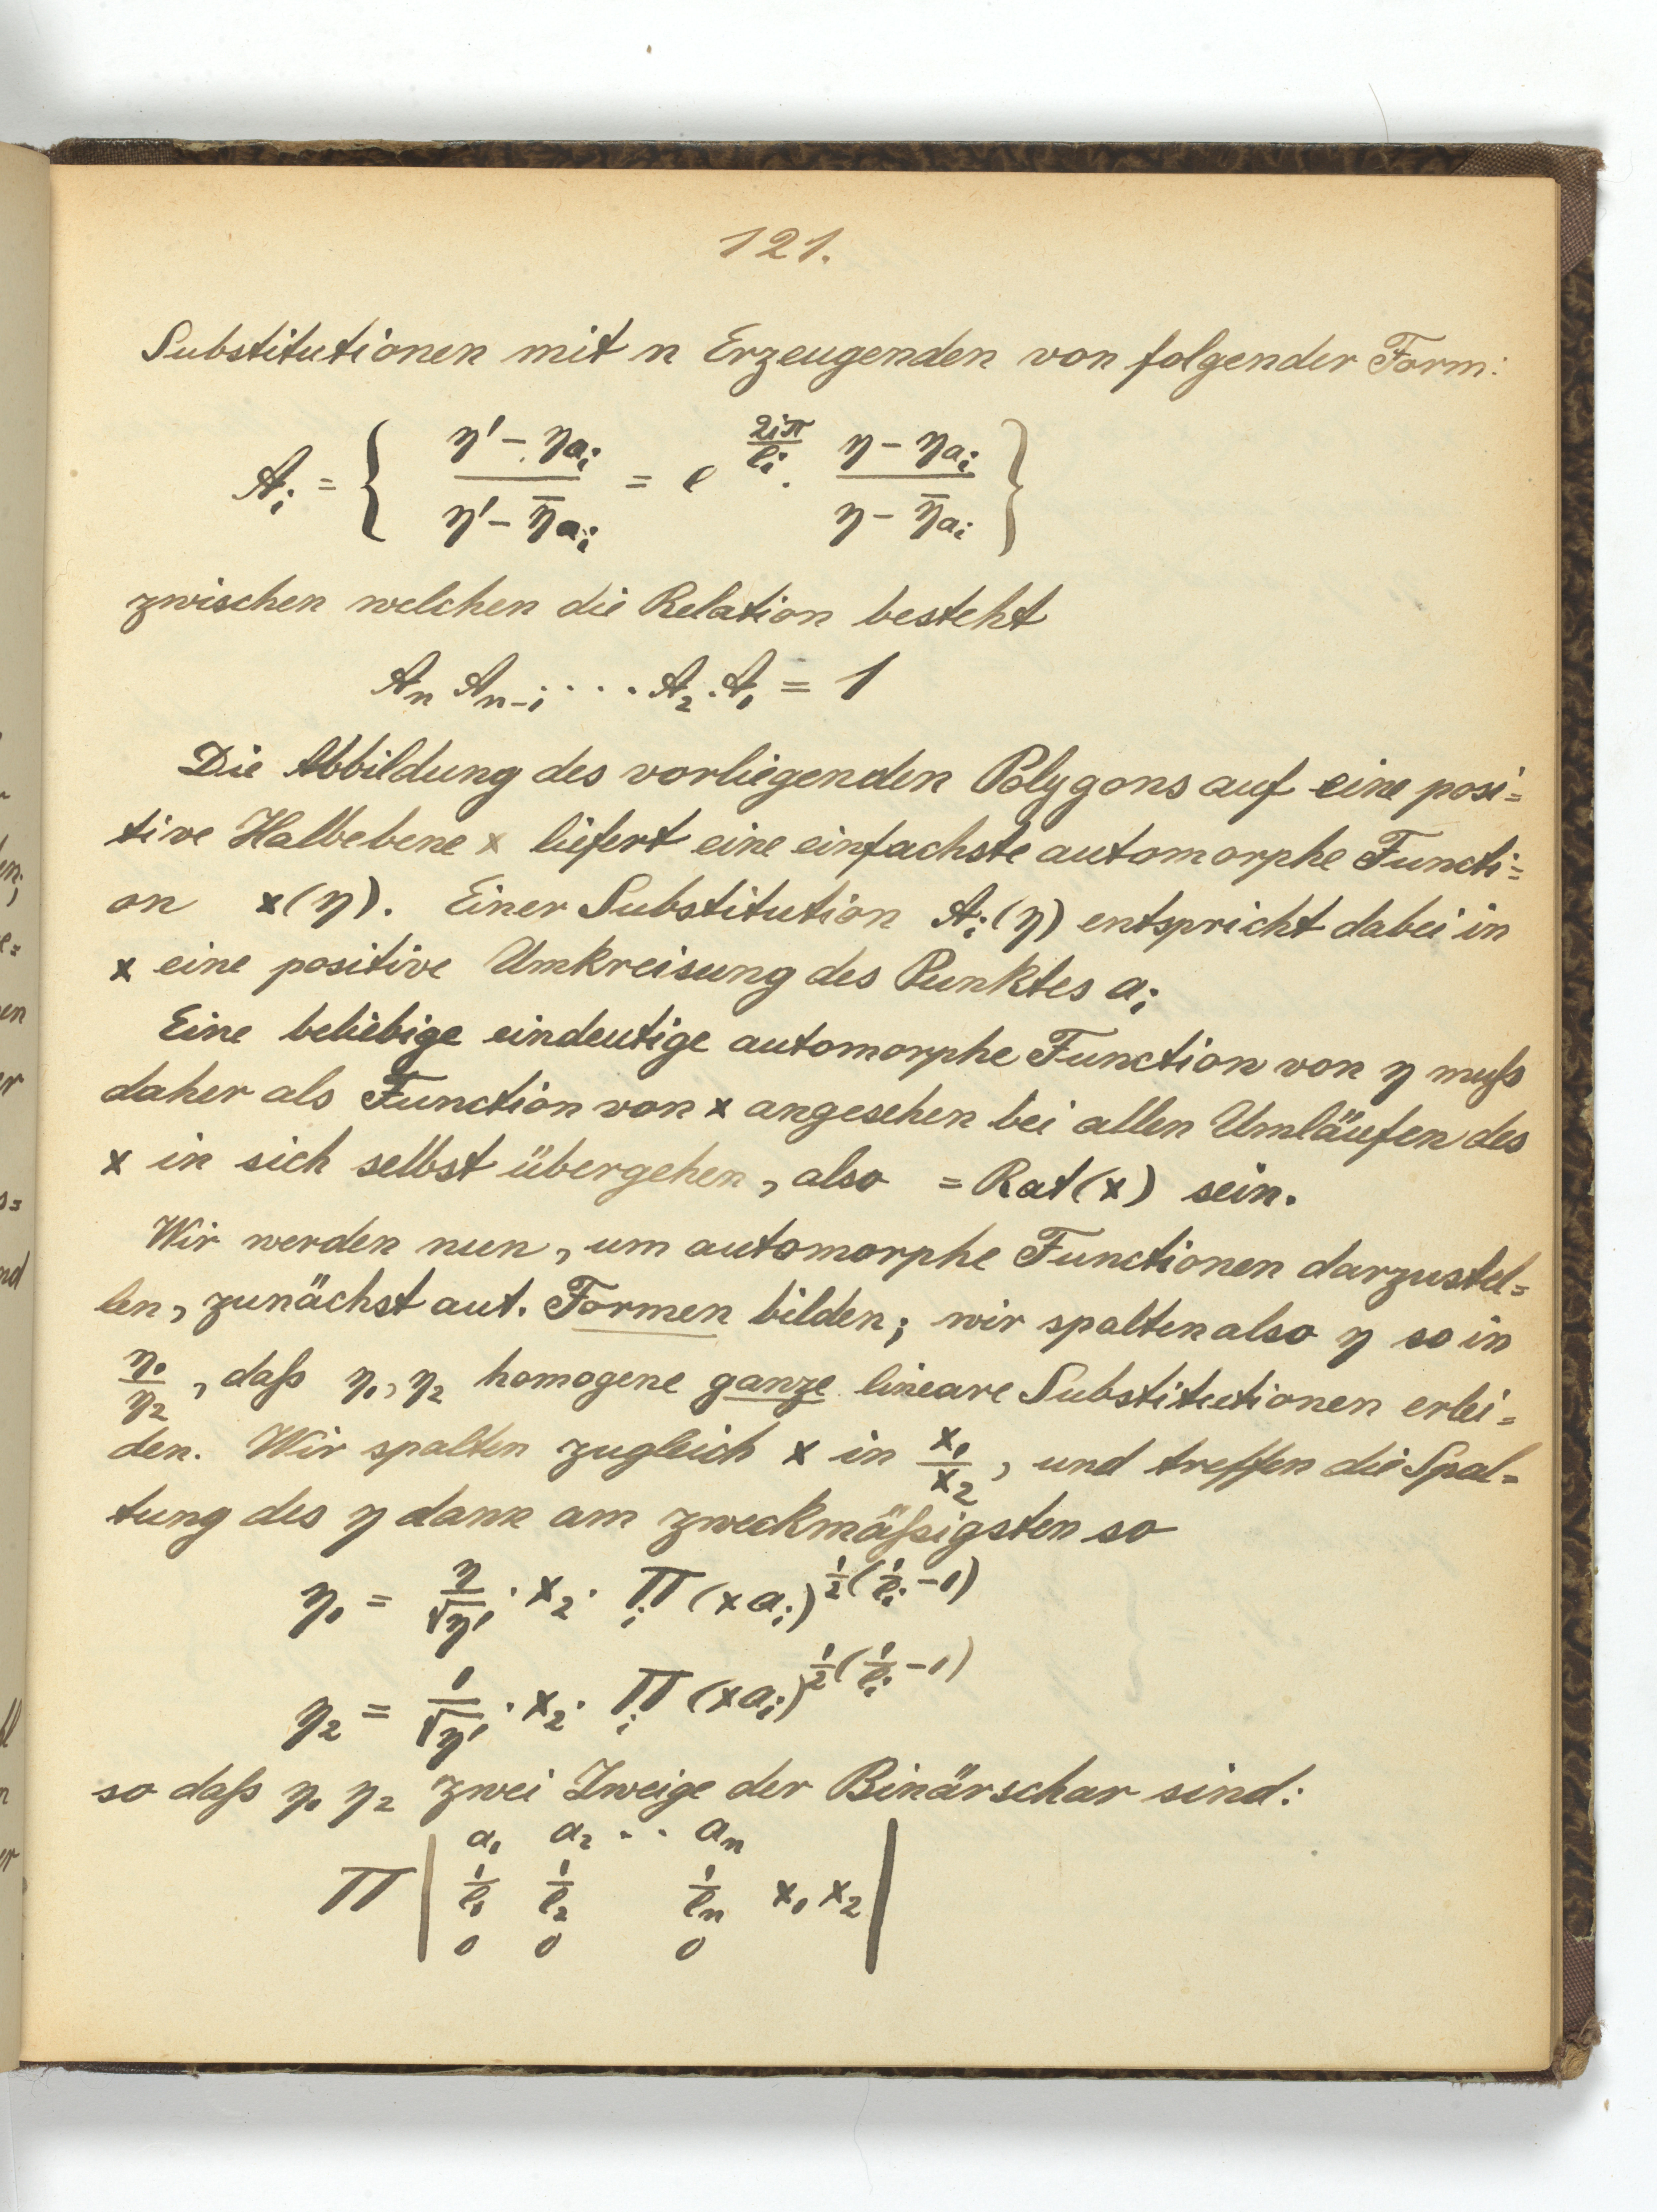 121.
Substitutionen mit n Erzeugenden von folgender Form:
A_i = { (η' − η_{a_i}) / (η' − η̄_{a_i}) = e^{2iπ/l_i} · (η − η_{a_i}) / (η − η̄_{a_i}) }
zwischen welchen die Relation besteht
A_n A_{n-1} . . . . A_2 . A_1 = 1
Die Abbildung des vorliegenden Polygons auf eine posi=
tive Halbebene x liefert eine einfachste automorphe Functi=
on x(η). Einer Substitution A_i(η) entspricht dabei in
x eine positive Umkreisung des Punktes a_i
Eine beliebige eindeutige automorphe Function von η muß
daher als Function von x angesehen bei allen Umläufen des
x in sich selbst übergehen, also = Rat(x) sein.
Wir werden nun, um automorphe Functionen darzustel=
len, zunächst aut. Formen bilden; wir spalten also η so in
η_1/η_2, daß η_1, η_2 homogene ganze lineare Substitutionen erlei=
den. Wir spalten zugleich x in x_1/x_2, und treffen die Spal=
tung des η dann am zweckmäßigsten so
η_1 = η/√η' · x_2 · Π_i (x a_i)^{1/2(1/l_i − 1)}
η_2 = 1/√η' · x_2 · Π_i (x a_i)^{1/2(1/l_i − 1)}
so daß η_1 η_2 zwei Zweige der Binärschar sind:
a_1 a_2 . . a_n
Π | 1/l_1 1/l_2 1/l_n x_1 x_2 |
0 0 0